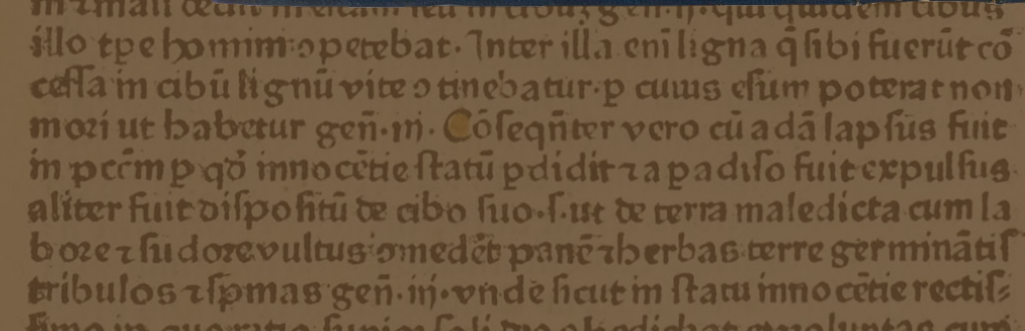 illo tp̄e homini ↄpetebat. Inter illa eni ligna q̄ sibi fuerūt cō
cessa in cibū lignū vite ↄtinebatur. p cuius esum poterat non
mori ut habetur gen̄.iij. Cōseqn̄ter vero cū adā lapsus fuit
in pcc̄m p qđ innocētie statū pdidit ⁊ a padiso fuit expulsus
aliter fuit dispositū de cibo suo.s.ut de terra maledicta cum la
bore ⁊ sudore vultus ↄmedēt panē ⁊ herbas terre germinātis
tribulos ⁊ spinas gen̄.iij. vnde sicut in statu innocētie rectis⸗